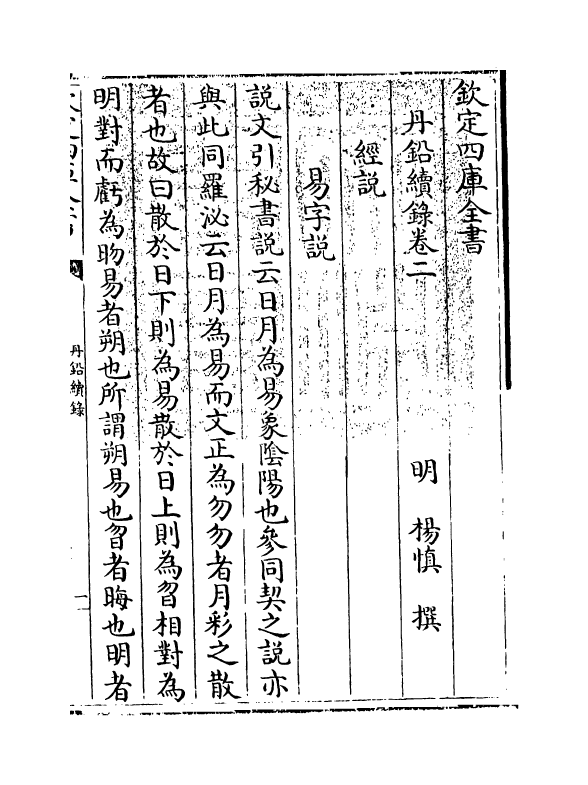 欽定四庫全書
丹鉛續錄卷二
明 楊慎 撰
經説
易字説
説文引秘書説云日月為易象陰陽也參同契之説亦
與此同羅泌云日月為易而文正為勿勿者月彩之散
者也故曰散於日下則為易散於日上則為曶相對為
明對而虧為昒易者朔也所謂朔易也曶者晦也明者
丹鉛續錄
一